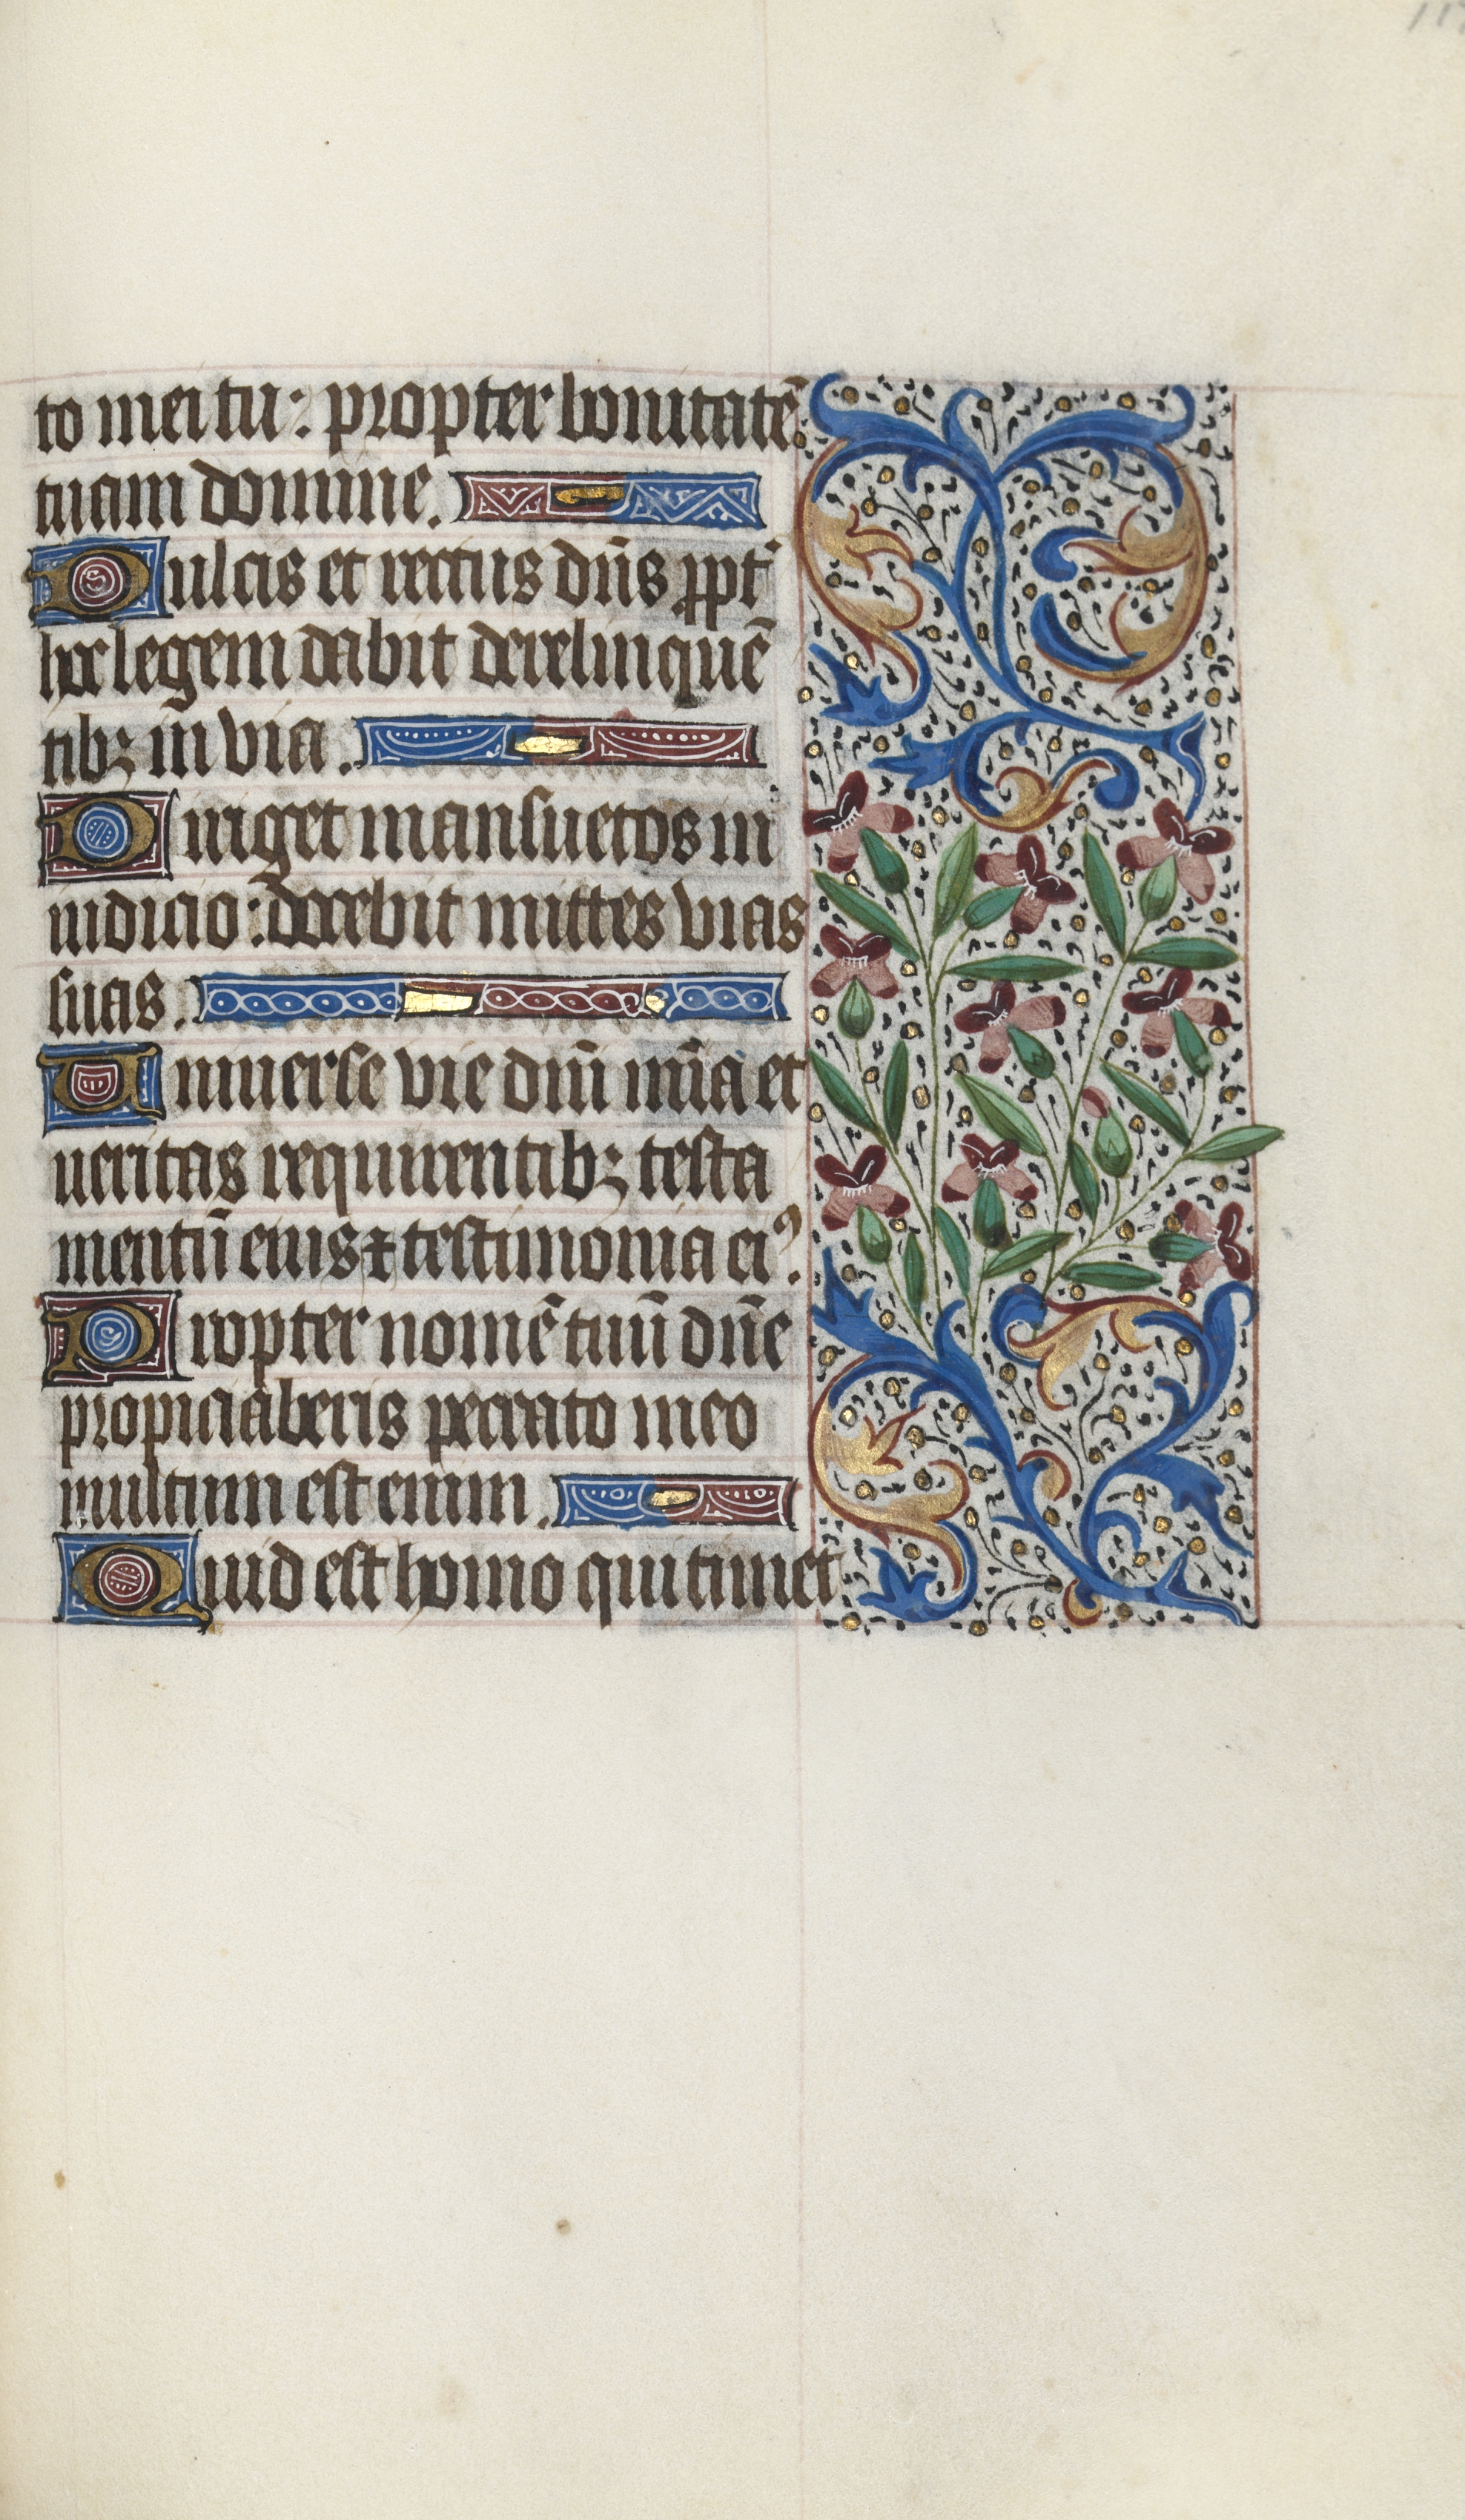 to mei tu: propter bonitatē
tuam domine.
Dulcis et rectus dn̄s ppt̄
hoc legem dabit derelinquē
tibꝫ in via.
Diriget mansuetos in
iudicio: docebit mittes vias
suas.
Uniuerse vie dn̄i mīa et
ueritas requirentibꝫ testa
mentū eius ⁊ testimonia eiꝰ.
Propter nomē tuū dn̄e
propiciaberis peccato meo
multum est enim.
Quid est homo qui timet